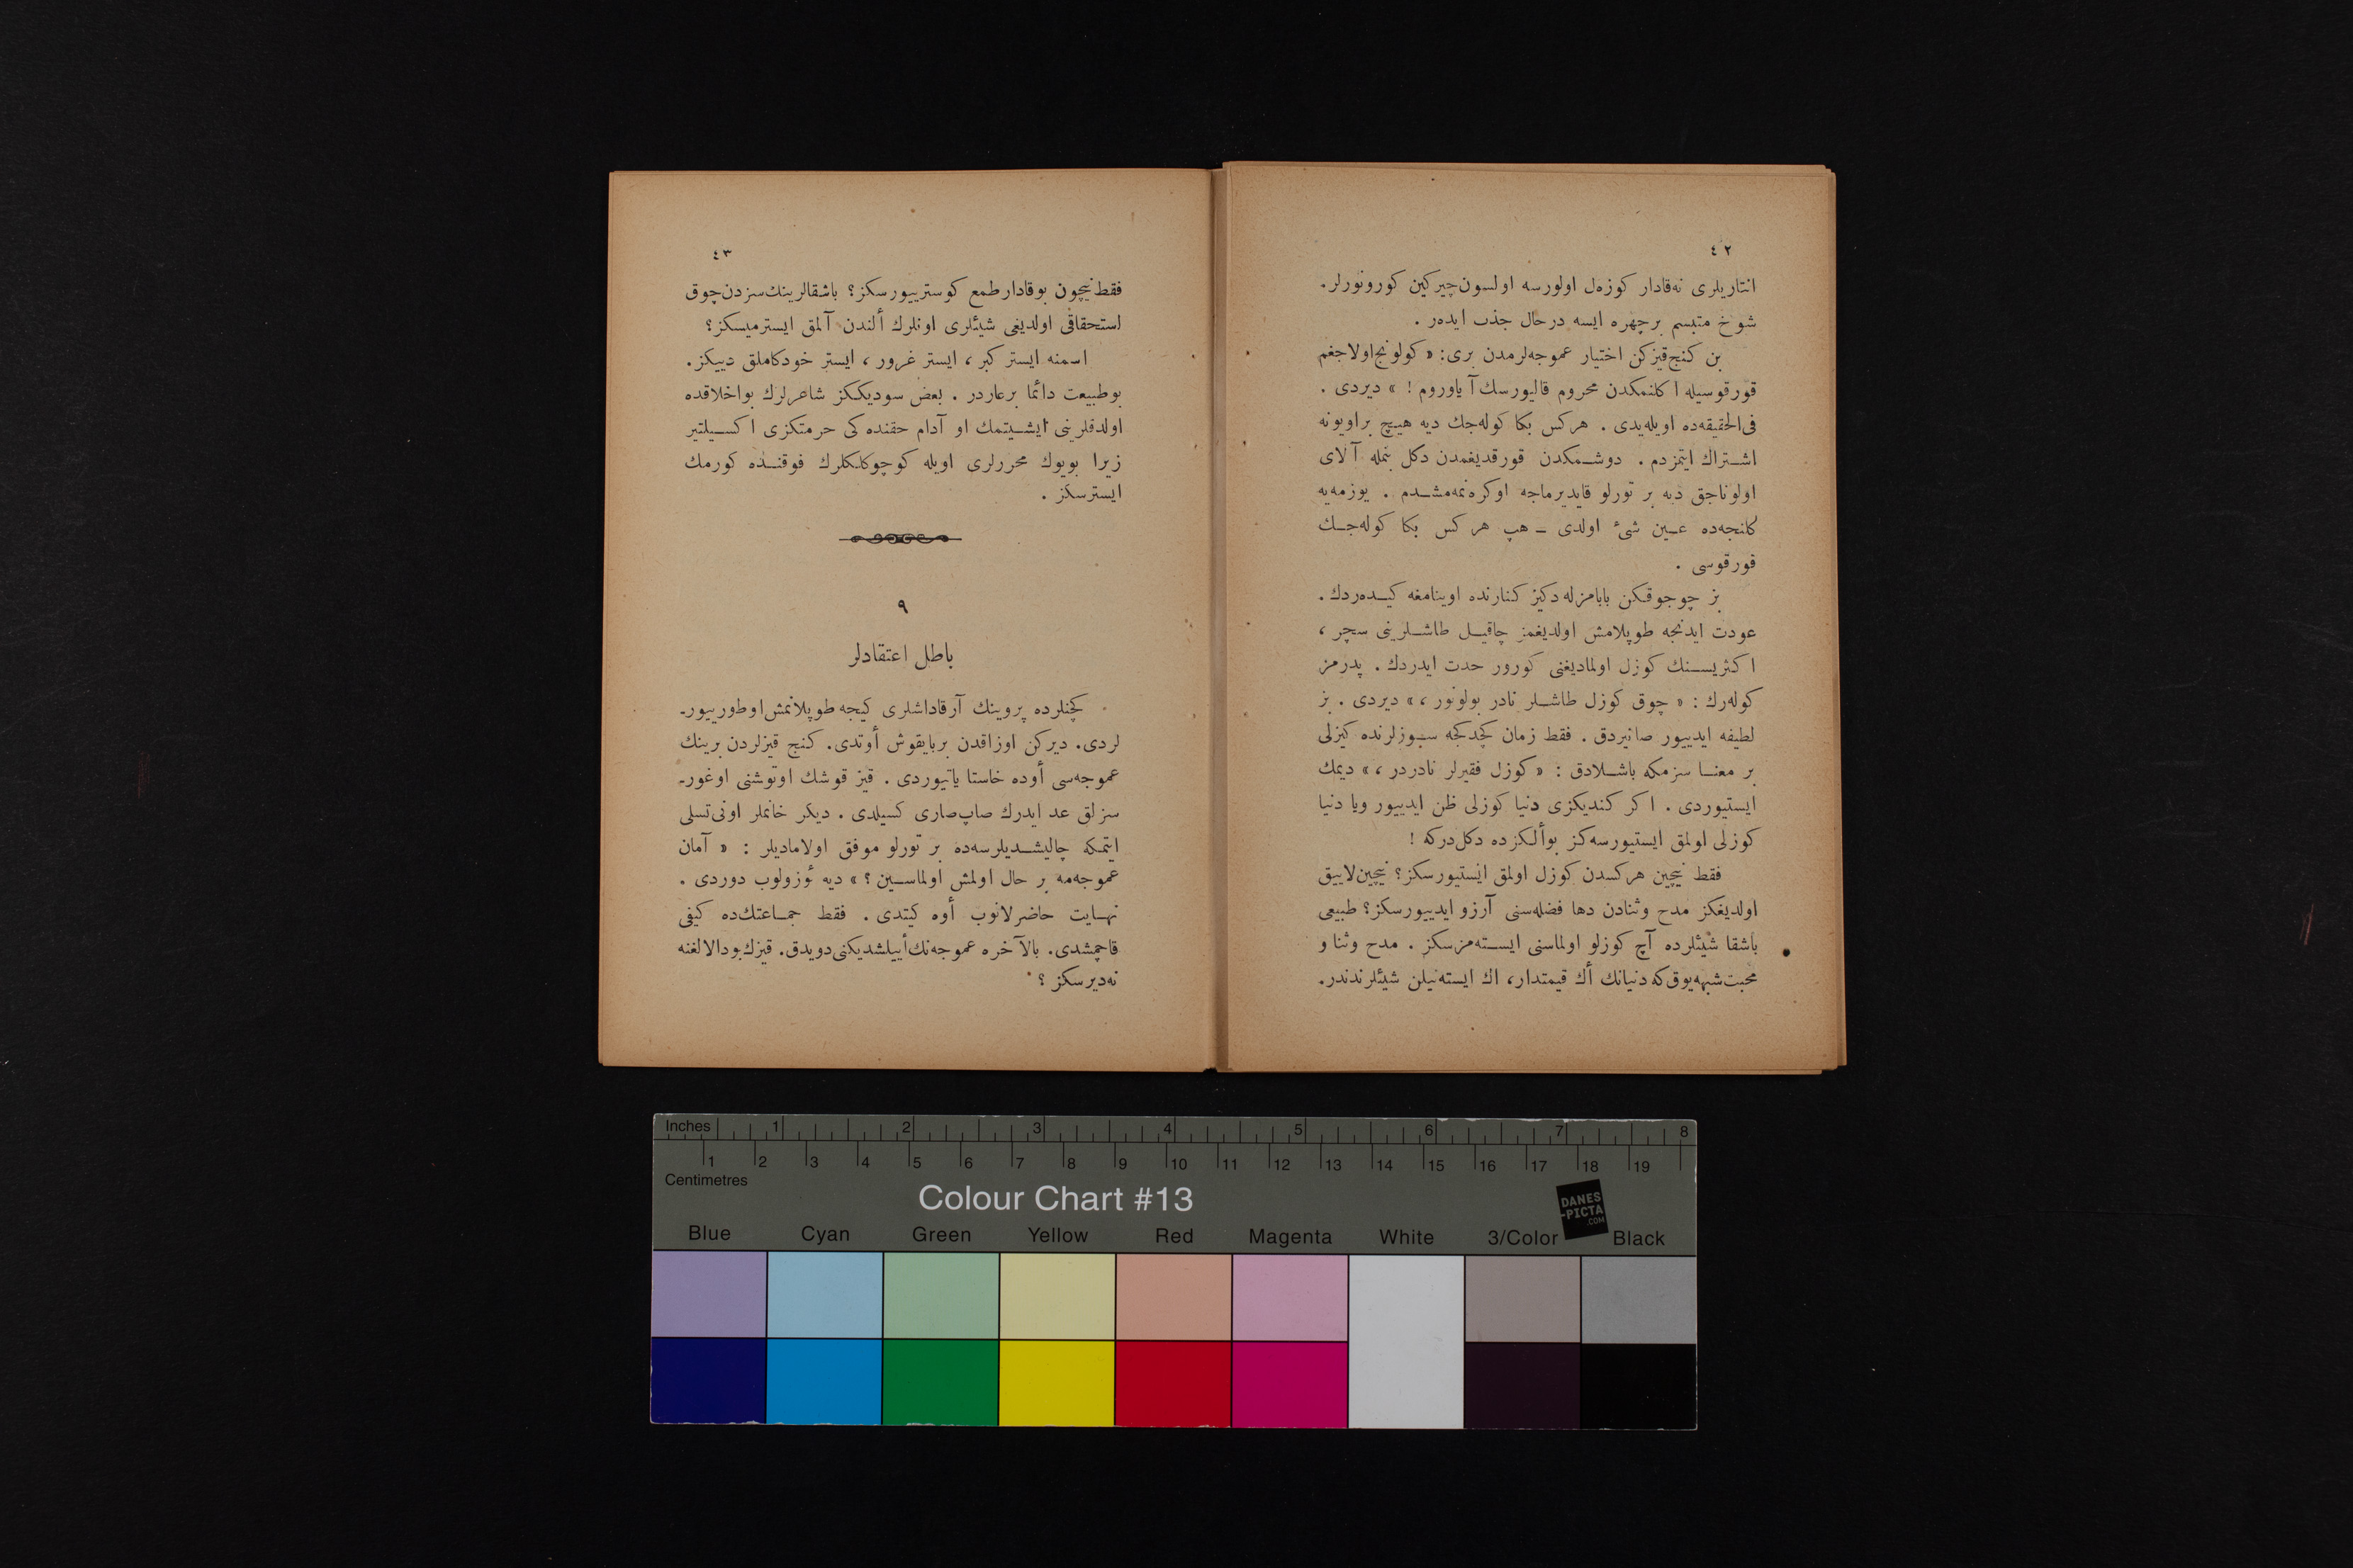 ٤٢
انتاریلری نه‌قادار کوزه‌ل اولورسه اولسون چیرکین کورونورلر.
شوخ متبسم برچهره ایسه درحال جذب ایده‌ر .
بن کنج‌قیزکن اختیار عموجه‌لرمدن بری: « کولونج‌اولاجغم
قورقوسیله اکلنمکدن محروم قالیورسك آ یاوروم ! » دیردی .
فی‌الحقیقه‌ده اویله‌یدی . هرکس بکا کوله‌جك دیه هیچ براویونه
اشتراك ایتمزدم . دوشمکدن قورقدیغمدن دکل بنمله آلای
اولوناجق دیه بر تورلو قایدیرماجه اوکره‌نمه‌مشدم . یوزمه‌یه
کلنجه‌ده عین شیٔ اولدی ـ هپ هرکس بکا کوله‌جك
قورقوسی .
بز چوجوقکن بابامزله دکیز کنارنده اوینامغه کیده‌ردك .
عودت ایدنجه طوپلامش اولدیغمز چاقیل طاشلرینی سچر ،
اکثریسنك کوزل اولمادیغنی کورور حدت ایدردك . پدرمز
کوله‌رك : « چوق کوزل طاشلر نادر بولونور ، » دیردی . بز
لطیفه ایدییور صانیردق . فقط زمان کچدکجه سوزلرنده کیزلی
بر معنا سزمکه باشلادق : « کوزل فقیرلر نادردر ، » دیمك
ایستیوردی . اکر کندیکزی دنیا کوزلی ظن ایدییور ویا دنیا
کوزلی اولمق ایستیورسه‌کز بوألکزده دکل‌درکه !
فقط نیچین هرکسدن کوزل اولمق ایستیورسکز؟ نیچین‌لاییق
اولدیغکز مدح وثنادن دها فضله‌سنی آرزو ایدییورسکز؟ طبیعی
باشقا شیئلرده آچ کوزلو اولماسنی ایسته‌مزسکز . مدح وثنا و
محبت‌شبهه‌یوق‌که دنیانك أك قیمتدار، اك ایسته‌نیلن شیئلرندندر.
٤٣
فقط نیچون بوقادار طمع کوستریبورسکز؟ باشقالرینك‌سزدن‌چوق
استحقاقی اولدیغی شیئلری اونلرك ألندن آلمق ایسترمیسکز؟
اسمنه ایستر کبر ، ایستر غرور ، ایستر خودکاملق دییکز .
بوطبیعت دائما برعاردر . بعض سودیککز شاعرلرك بواخلاقده
اولدقلرینی ایشیتمك او آدام حقنده کی حرمتکزی اکسیلتیر
زیرا بویوك محررلری اویله کوچوکلکلرك فوقنده کورمك
ایسترسکز .
٩
باطل اعتقادلر
کچنلرده پروینك آرقاداشلری کیجه طوپلانمش‌اوطورییور‌ـ
لردی. دیرکن اوزاقدن بربایقوش أوتدی. کنج قیزلردن برینك
عموجه‌سی أوده خاستا یاتیوردی . قیز قوشك اوتوشنی اوغور‌ـ
سزلق عد ایدرك صاپ‌صاری کسیلدی . دیکر خانملر اونی‌تسلی
ایتمکه چالیشدیلرسه‌ده بر تورلو موفق اولامادیلر : « آمان
عموجه‌مه بر حال اولمش اولماسین ؟ » دیه ئوزولوب دوردی .
نهایت حاضرلانوب أوه کیتدی . فقط جماعتك‌ده کیفی
قاچمشدی. بالآخره عموجه‌نك‌أییلشدیکنی‌دویدق. قیزك‌بودالالغنه
نه‌دیرسکز ؟
Inches 1 2 3 4 5 6 7 8
1 2 3 4 5 6 7 8 9 10 11 12 13 14 15 16 17 18 19
Centimetres
Colour Chart #13
DANES
-PICTA
.COM
Blue Cyan Green Yellow Red Magenta White 3/Color Black